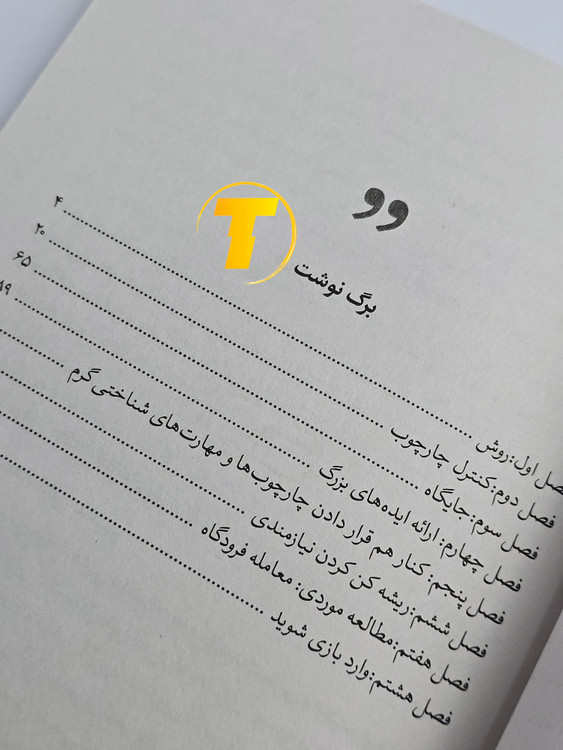 T
برگ نوشت
فصل اول:روش ........ ۴
فصل دوم:کنترل چارچوب ........ ۲۰
فصل سوم:جایگاه ........ ۶۵
فصل چهارم: ارائه ایده‌های بزرگ ........
فصل پنجم: کنار هم قرار دادن چارچوب‌ها و مهارت‌های شناختی گرم ........
فصل ششم:ریشه کن کردن نیازمندی ........
فصل هفتم:مطالعه موردی: معامله فرودگاه ........
فصل هشتم:وارد بازی شوید ........